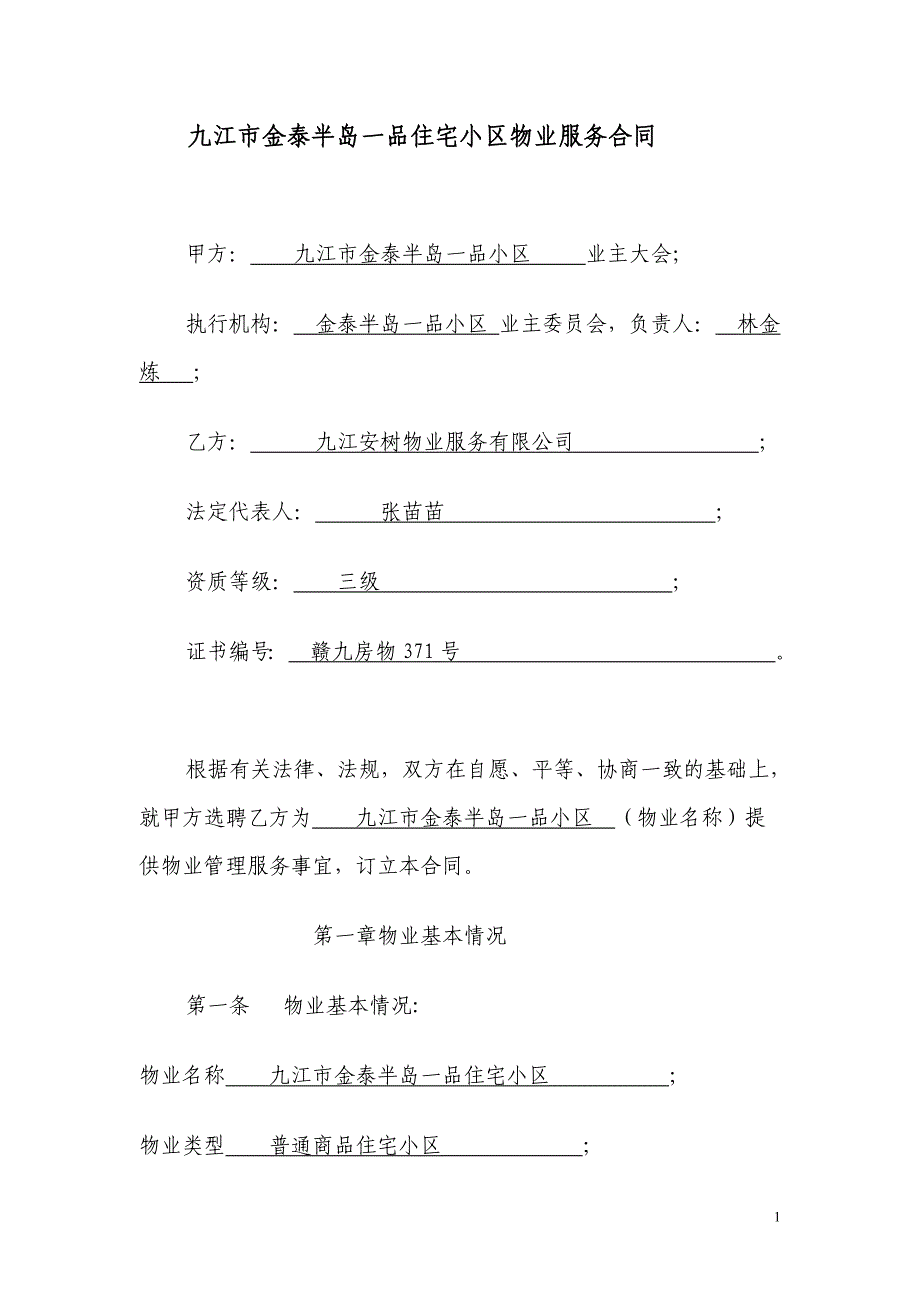 九江市金泰半岛一品住宅小区物业服务合同
甲方： 九江市金泰半岛一品小区 业主大会；
执行机构： 金泰半岛一品小区 业主委员会，负责人： 林金
炼 ；
乙方： 九江安树物业服务有限公司 ；
法定代表人： 张苗苗 ；
资质等级： 三级 ；
证书编号： 赣九房物 371 号 。
根据有关法律、法规，双方在自愿、平等、协商一致的基础上，
就甲方选聘乙方为 九江市金泰半岛一品小区 （物业名称）提
供物业管理服务事宜，订立本合同。
第一章物业基本情况
第一条 物业基本情况：
物业名称 九江市金泰半岛一品住宅小区 ；
物业类型 普通商品住宅小区 ；
1